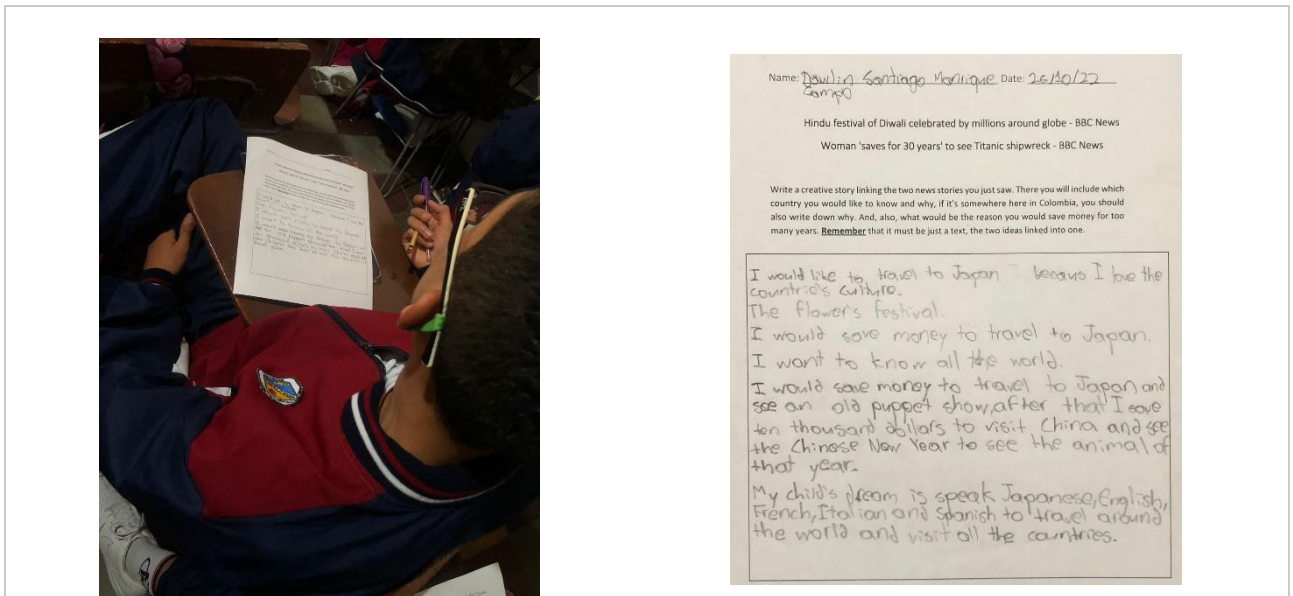 Name: Dawlin Santiago Manrique Date: 26/10/22
Campo
Hindu festival of Diwali celebrated by millions around globe - BBC News
Woman 'saves for 30 years' to see Titanic shipwreck - BBC News
Write a creative story linking the two news stories you just saw. There you will include which
country you would like to know and why, if it's somewhere here in Colombia, you should
also write down why. And, also, what would be the reason you would save money for too
many years. Remember that it must be just a text, the two ideas linked into one.
I would like to travel to Japan becaus I love the
countrie's culture.
The flower's festival.
I would save money to travel to Japan.
I want to know all the world.
I would save money to travel to Japan, and
see an old puppet show, after that I save
ten thousand dollars to visit China and see
the Chinese New Year to see the animal of
that year.
My child's dream is speak Japanese, English,
French, Italian and Spanish to travel around
the world and visit all the countries.